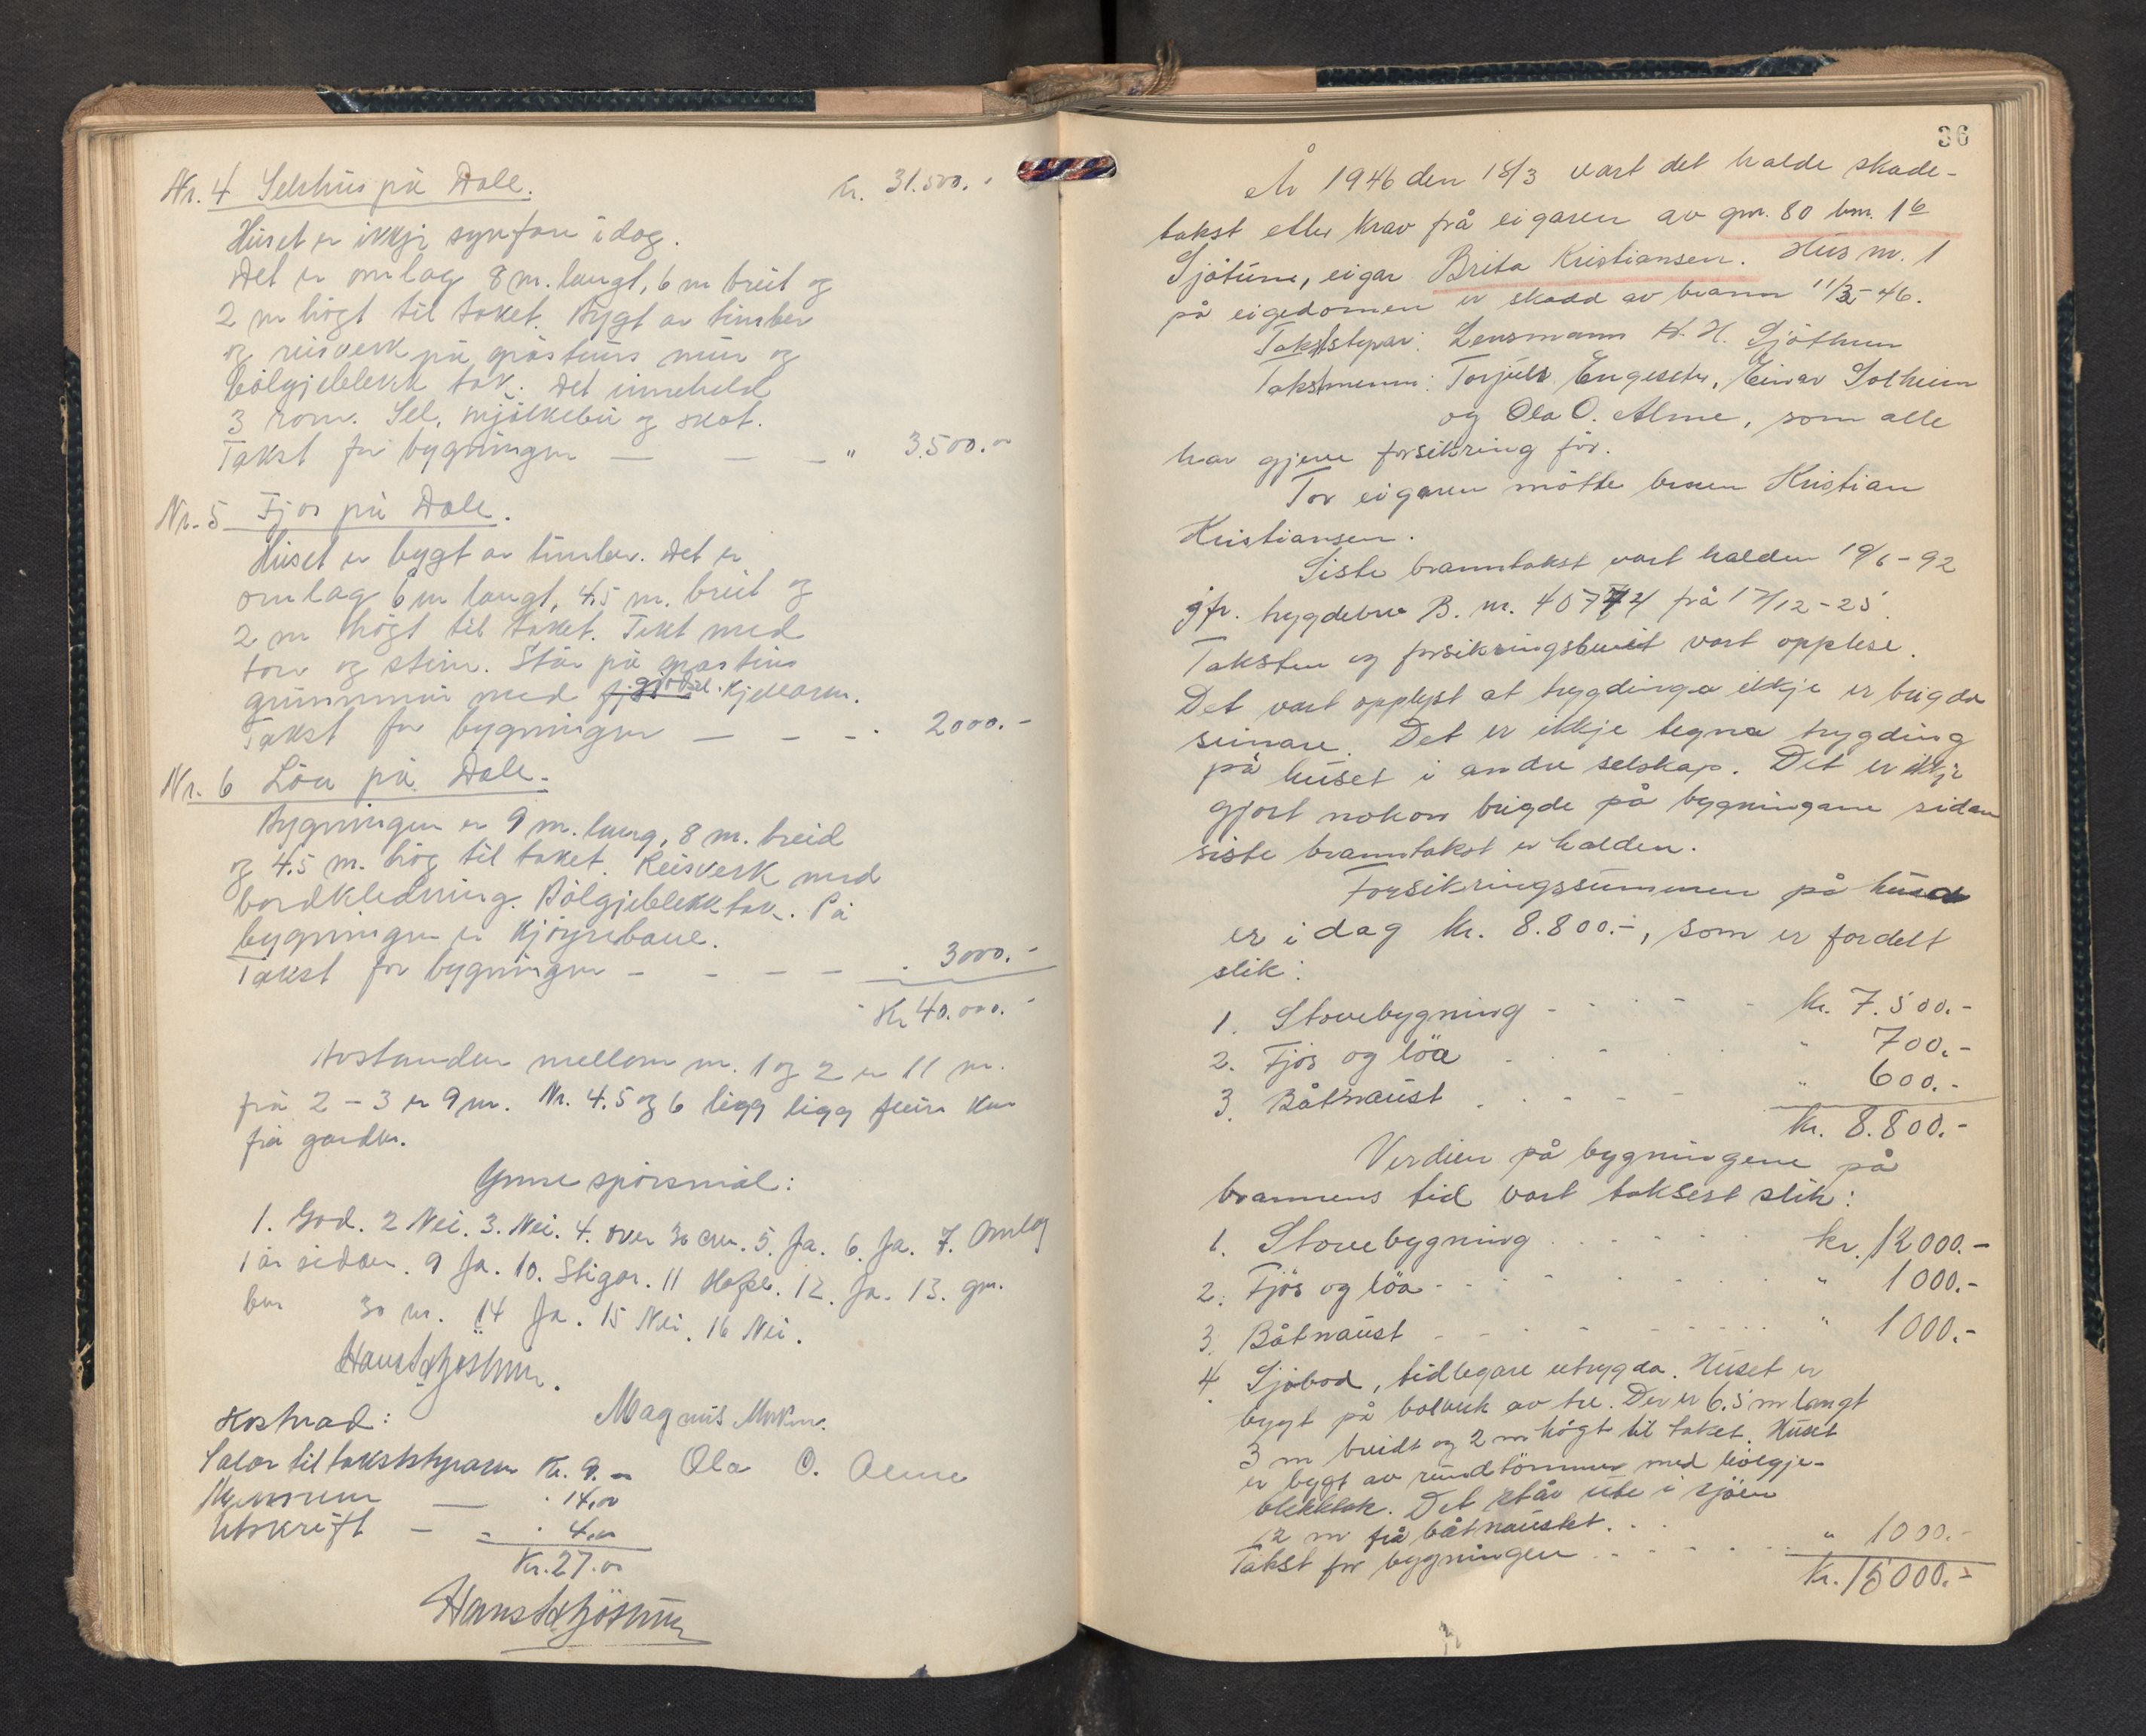 Nr. 4 Selshus på Dale. Kr. 31.500.-
Huset er ikkje synfare idag.
Det er omlag 8 m. langt, 6 m breit og
2 m högt til taket. Bygt av timber
og reisverk på gråsteins mur og
bölgjeblekk tak. Det inneheld
3 rom. Sel, mjölkebu og skot.
Takst for bygningen — — — " 3.500.-
Nr. 5 Fjös på Dale.
Huset er bygt av timber. Det er
omlag 6 m langt, 4,5 m. breit og
2 m högt til taket. Tekt med
torv og stein. Står på gråsteins
grunnmur med gjödsel kjellarm.
Takst for bygningen — — - . 2000.-
Nr. 6 Löa på Dale.
Bygningen er 9 m. lang, 8 m. breid
og 4.5 m. hög til taket. Reisverk med
bordkledning. Bölgjeblekktak. På
bygningen er kjöyrebane.
Takst for bygningen - - - — . 3000.-
Kr 40.000.-
Avstanden mellom nr. 1 og 2 er 11 m.
frå 2 - 3 er 9 m. Nr. 4.5 og 6 ligg ligg fleire km
frå garden.
Ymse spörsmål:
1. God. 2 Nei. 3. Nei. 4. over 30 cm. 5. Ja. 6. Ja. 7. Omlag
1 år sidan. 9 Ja. 10. Stigar. 11 12. Ja. 13. gm.
bm 30 m. 14 Ja. 15 Nei. 16 Nei.
Hans H Sjöthun.
Kostnad: Magnus
Salar til takststyraren Kr. 9.- Ola O. Alme
Mennene — . 14,00
Utskrift - = . 4,00
Kr. 27.00
Hans H Sjöthun
36
År 1946 den 18/3 vart det halde skade-
takst etter krav frå eigaren av gnr. 80 bnr. 16
Sjötune, eigar Brita Kristiansen. Hus nr. 1
på eigedomen er skadd av brann 11/3-46.
Takststyrar: Lensmann H. H. Sjöthun
Takstmenn: Torjuls Engeseter, Einar Solheim
og Ola O. Alme, som alle
har gjeve forsikring för.
For eigaren mötte broren Kristian
Kristiansen.
Siste branntakst vart halden 19/6-92
jfr. trygdebrev B. nr. 40774 frå 17/12-25.
Taksten og forsikringsbrevet vart opplese.
Det vart opplyst at trygdinga ikkje er brigda
seinare. Det er ikkje tegna trygding
på huset i andre selskap. Det er ikkje
gjort nokon brigde på bygningane sidan
siste branntakst er halden.
Forsikringssummen på husa
er i dag kr. 8.800.-, som er fordelt
slik:
1. Stovebygning - - - - - kr. 7.500.-
2. Fjös og löa . . - . . " 700.-
3. Båtnaust . . - - - " 600.-
kr. 8.800.-
Verdien på bygningene på
brannens tid vart taksert slik:
1. Stovebygning . . . . . . kr. 12000.-
2. Fjös og löa - - - - . . . " 1000.-
3. Båtnaust - - - - - . . . " 1000.-
4 Sjöbod, tidlegare utrygda. Huset er
bygt på bolverk av tre. Det er 6.5 m langt
3 m breidt og 2 m högt til taket. Huset
er bygt av rundtömmer med bölgje-
blekktak. Det står ute i sjöen
12 m frå båtnaustet. . .
Takst for bygningen . . . . . " 1000.-
Kr. 15000.-